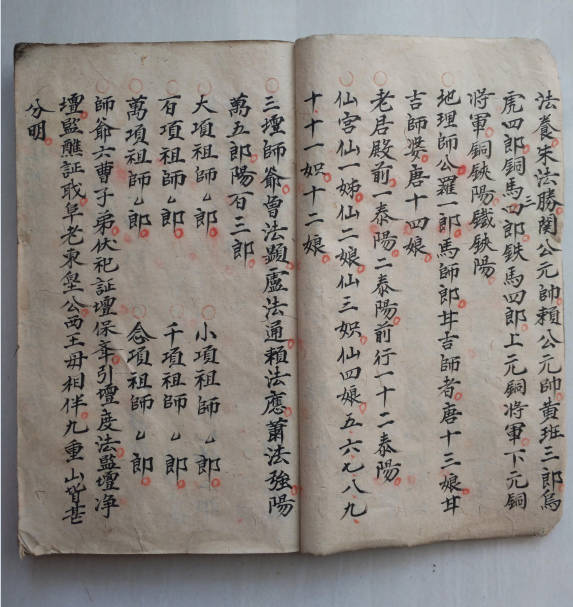 法養朱法勝関三公元帥賴公元帥黄班三郎烏
虎四郎銅馬四郎鉄馬四郎上元銅將軍下元銅
將軍銅鋏陽鐵鋏陽
地理師公羅一郎馬師郎廿吉師者唐十三娘廿
吉師婆唐十四娘
老君殿前一泰陽二泰陽前行一十二泰陽
仙宫仙一姊仙二娘仙三妀仙四娘五六九八九
十十一妀十二娘
三壇師爺曾法顕盧法通賴法應蕭法強陽
萬五郎陽百三郎
大項祖師乙郎
小項祖師乙郎
百項祖師乙郎
千項祖師乙郎
萬項祖師乙郎
念項祖師乙郎
師爺六曹子弟伏祀証壇保奉引壇度法監壇净
壇監醮証戝阜老東皇公西王母相伴九重山皆芒
分明